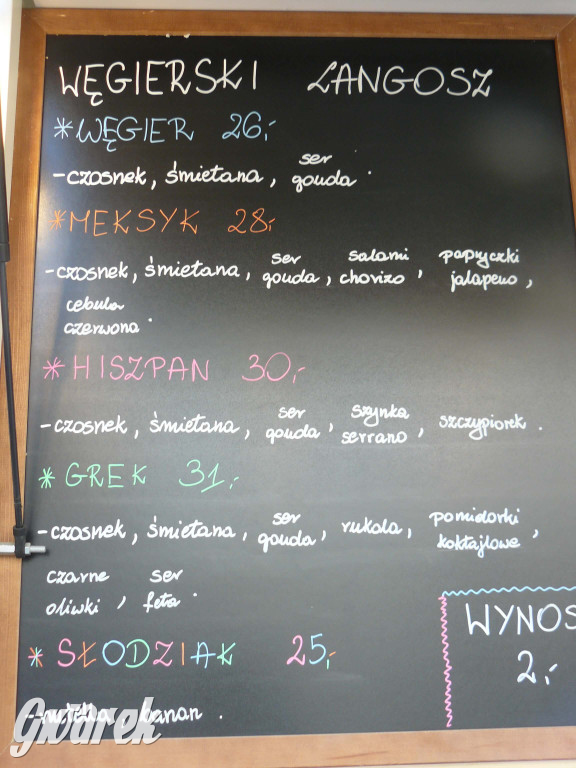 WĘGIERSKI LANGOSZ
*WĘGIER 26,-
-czosnek, śmietana, ser gouda.
*MEKSYK 28,-
-czosnek, śmietana, ser gouda, salami chorizo, papryczki jalapeno,
cebula czerwona.
*HISZPAN 30,-
-czosnek, śmietana, ser gouda, szynka serrano, szczypiorek.
*GREK 31,-
-czosnek, śmietana, ser gouda, rukola, pomidorki koktajlowe,
czarne oliwki, ser feta.
*SŁODZIAK 25,-
-nutella, banan.
WYNOS
2,-
Gwarek